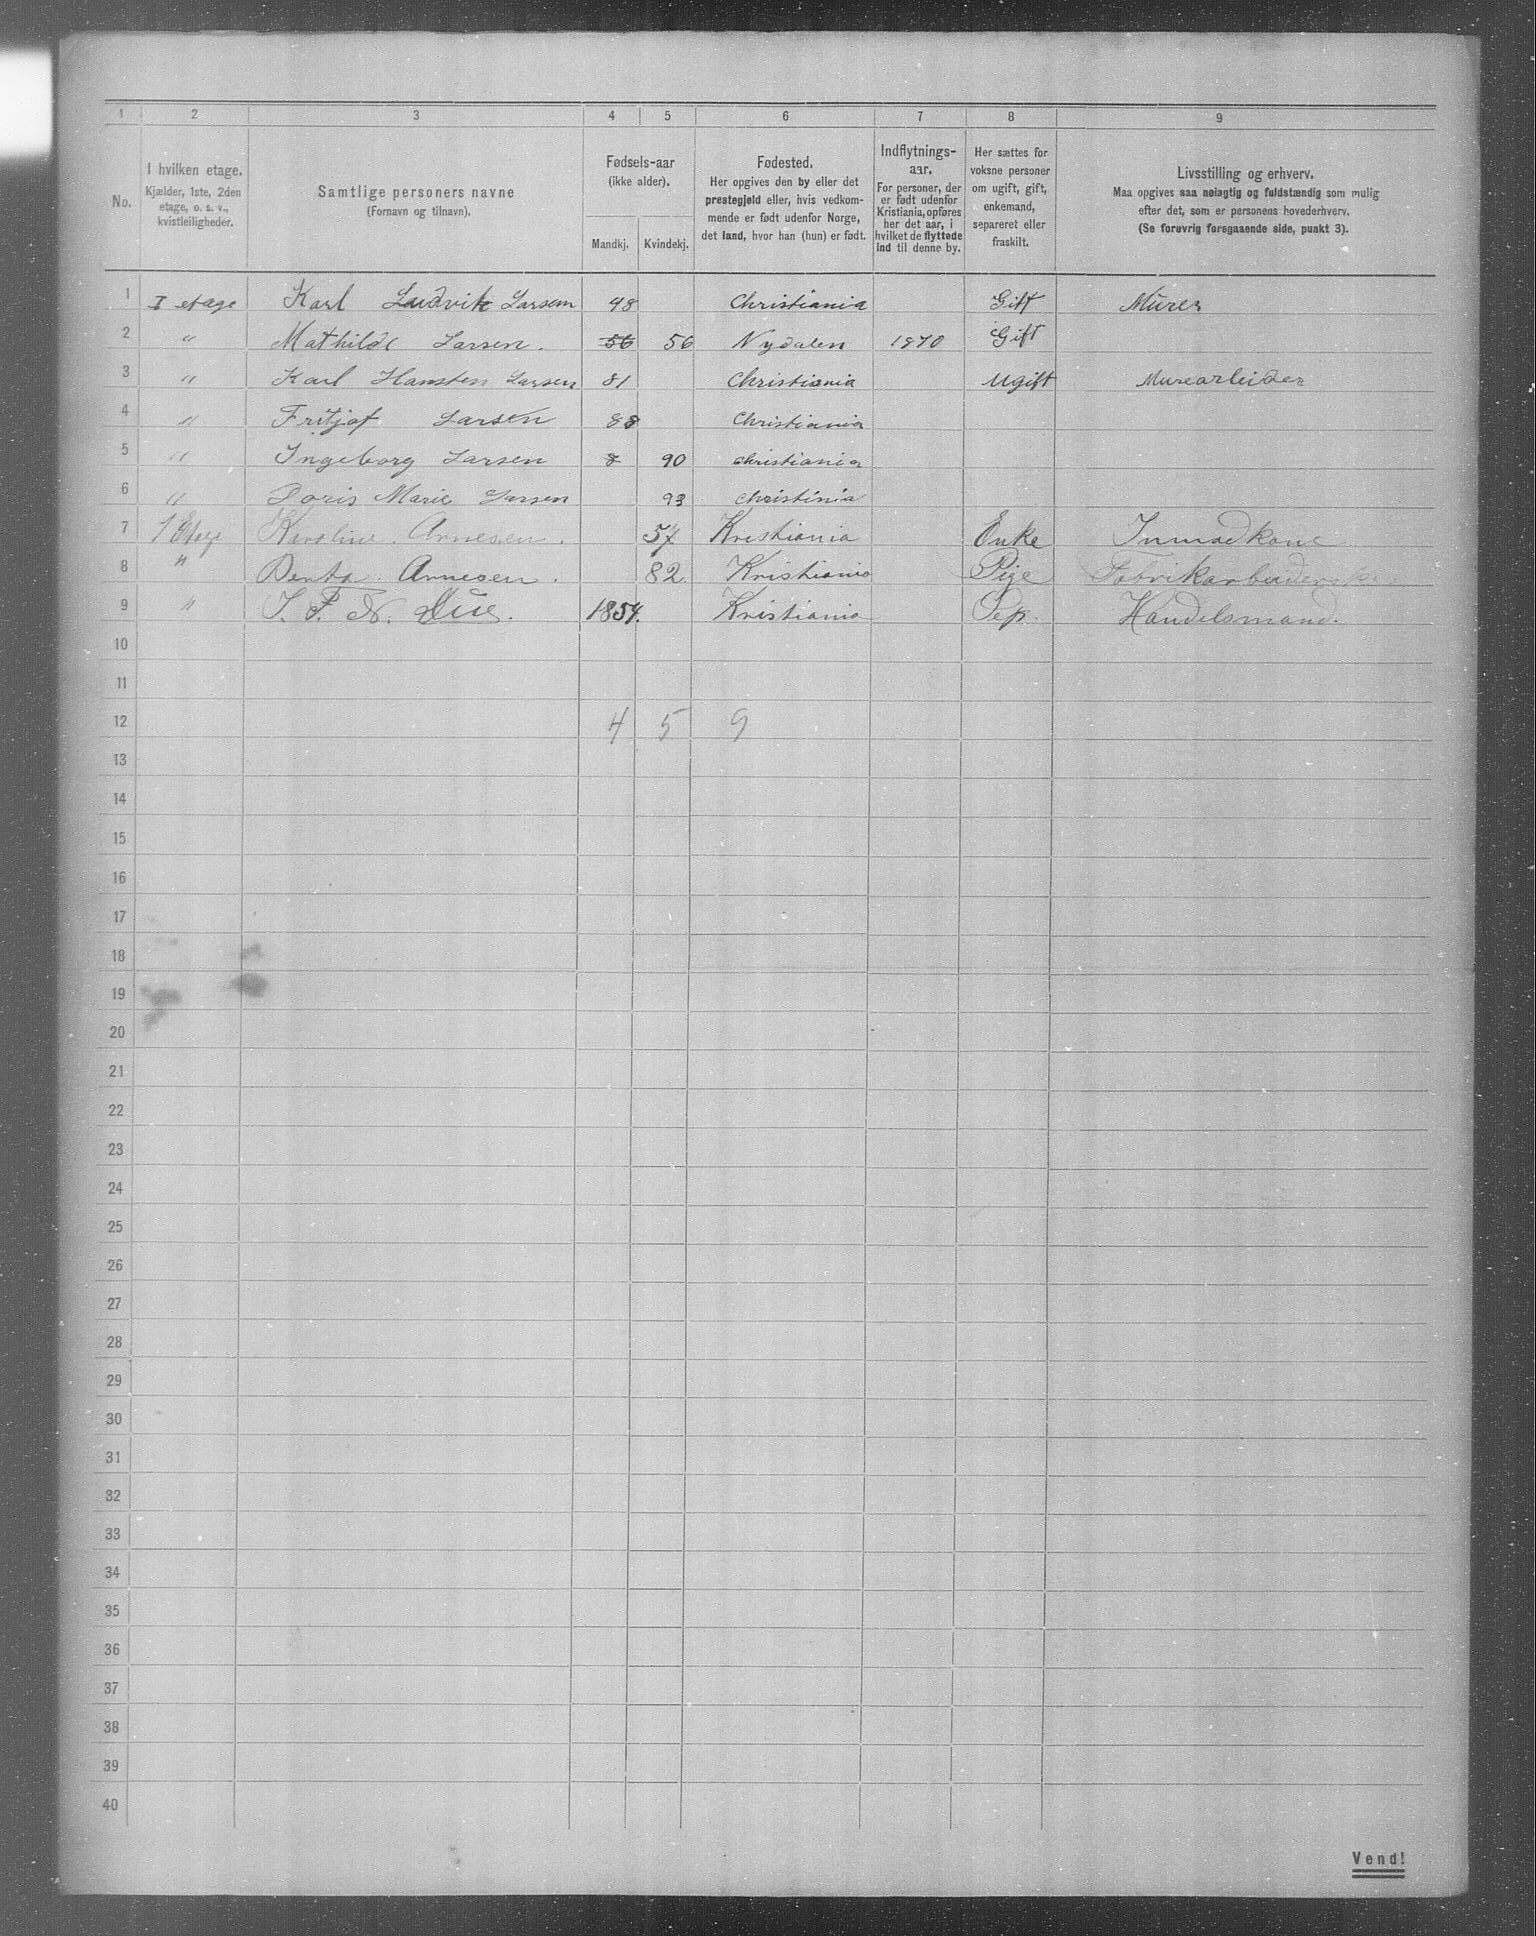 1 2 3 4 5 6 7 8 9
No.
I hvilken etage.
Kjælder, 1ste, 2den
etage, o. s. v.,
kvistleiligheder.
Samtlige personers navne
(Fornavn og tilnavn).
Fødsels-aar
(ikke alder).
Mandkj. Kvindekj.
Fødested.
Her opgives den by eller det
prestegjeld eller, hvis vedkom-
mende er født udenfor Norge,
det land, hvor han (hun) er født.
Indflytnings-
aar.
For personer, der
er født udenfor
Kristiania, opføres
her det aar, i
hvilket de flyttede
ind til denne by.
Her sættes for
voksne personer
om ugift, gift,
enkemand,
separeret eller
fraskilt.
Livsstilling og erhverv.
Maa opgives saa nøiagtig og fuldstændig som mulig
efter det, som er personens hovederhverv.
(Se forøvrig foregaaende side, punkt 3).
1 I etage Karl Ludvik Larsen 48 Christiania Gift Murer
2 " Mathilde Larsen. 56 56 Nydalen 1870 Gift
3 " Karl Hansten Larsen 81 Christiania Ugift Murearbeider
4 " Fritjof Larsen 88 Christiania
5 " Ingeborg Larsen 8 90 Christiania
6 " Doris Marie Larsen 93 Christinia
7 1 Etage Karoline. Arnesen. 57 Kristiania Enke
8 " Arnesen. 82. Kristiania Pige Fabrikarbeiderske
9 " J. F. N. Due. 1854. Kristiania Sep. Handelsmand.
10
11
12 4 5 9
13
14
15
16
17
18
19
20
21
22
23
24
25
26
27
28
29
30
31
32
33
34
35
36
37
38
39
40
Vend!